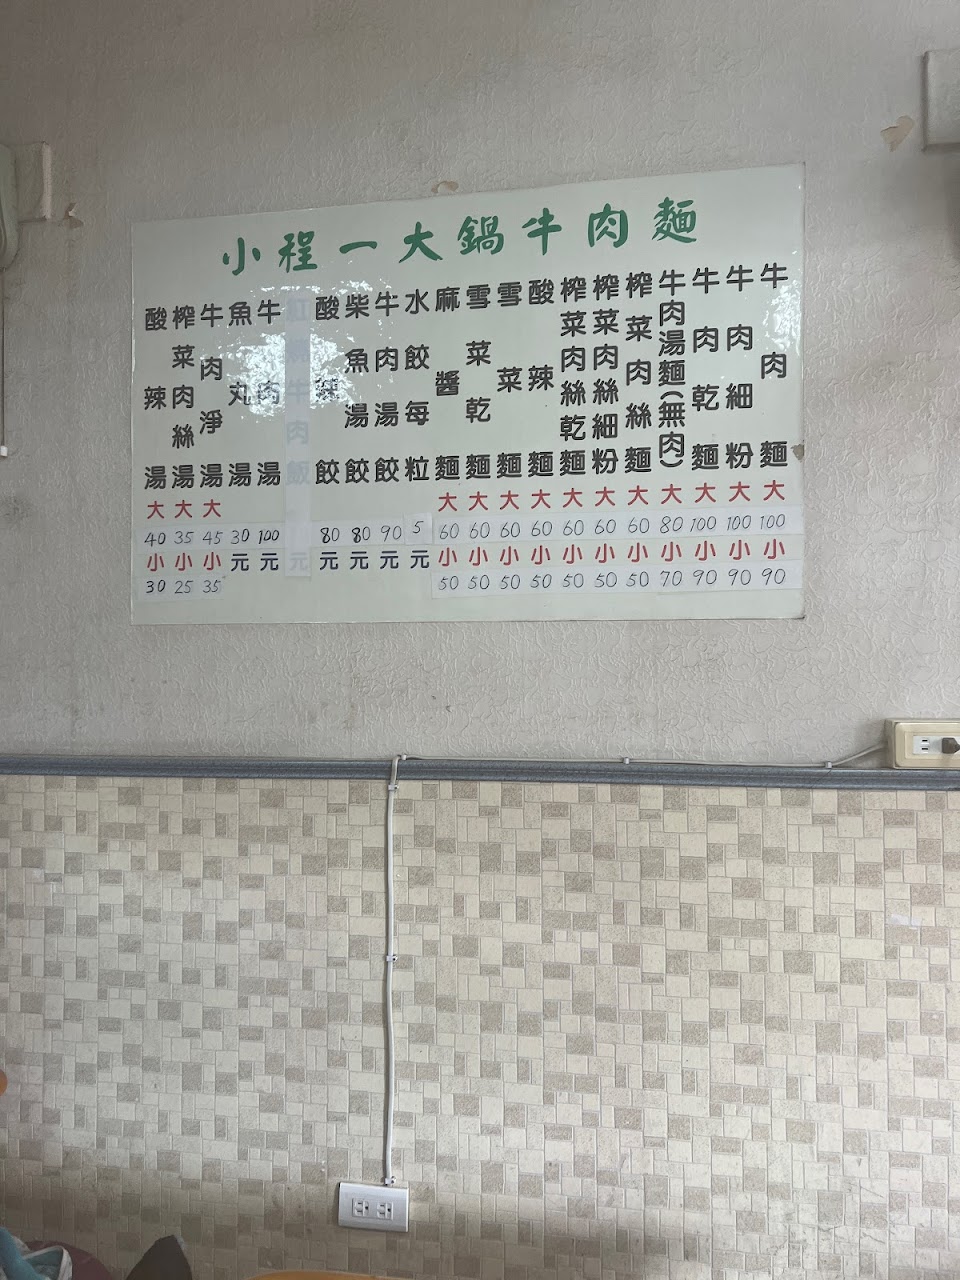 小程一大鍋牛肉麵
牛肉麵大100小90
牛肉細粉大100小90
牛肉乾麵大100小90
牛肉湯麵(無肉)大80小70
榨菜肉絲麵大60小50
榨菜肉絲細粉大60小50
榨菜肉絲乾麵大60小50
酸辣麵大60小50
雪菜麵大60小50
雪菜乾麵大60小50
麻醬麵大60小50
水餃每粒5元
牛肉湯餃90元
柴魚湯餃80元
酸辣餃80元
紅燒牛肉飯元
牛肉湯100元
魚丸湯30元
牛肉淨湯大45小35
榨菜肉絲湯大35小25
酸辣湯大40小30